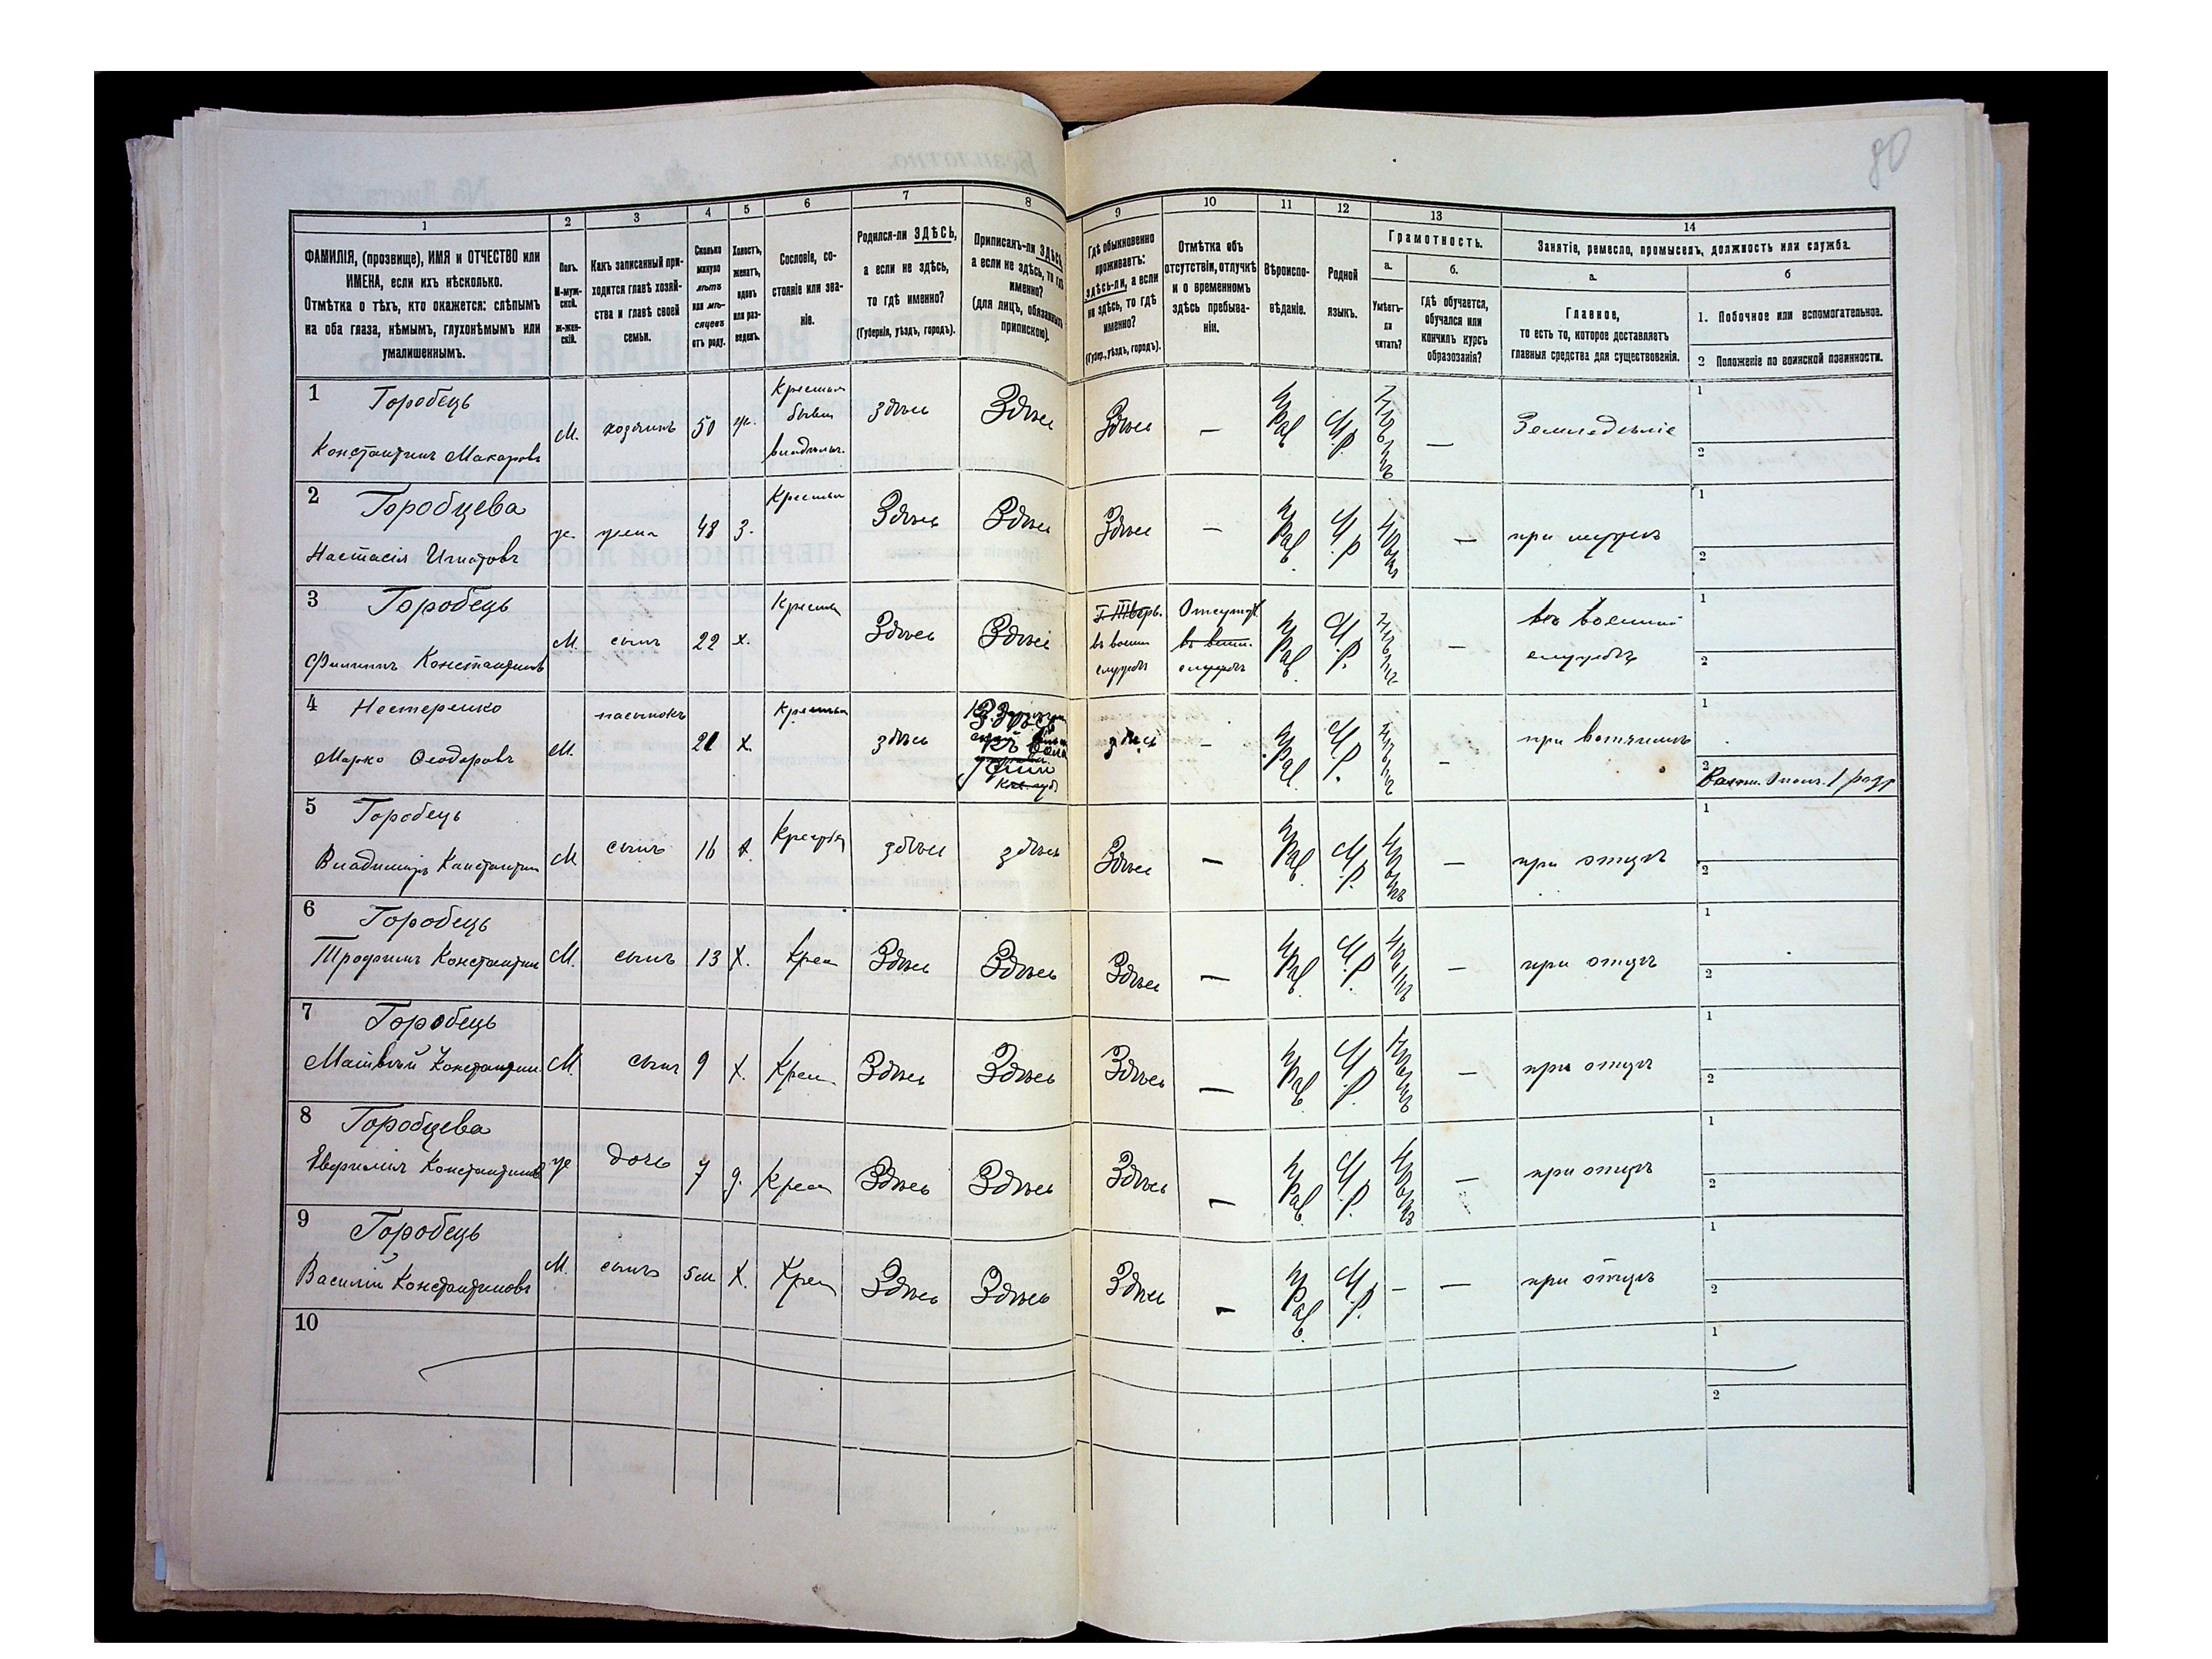 80
1 2 3 4 5 6 7 8 9 10 11 12 13 14
ФАМИЛІЯ, (прозвище), ИМЯ и ОТЧЕСТВО или
ИМЕНА, если ихъ нѣсколько.
Отмѣтка о тѣхъ, кто окажется: слѣпымъ
на оба глаза, нѣмымъ, глухонѣмымъ или
умалишеннымъ.
Полъ.
М-муж-
ской.
Ж-жен-
скій.
Какъ записанный при-
ходится главѣ хозяй-
ства и главѣ своей
семьи.
Сколько
минуло
лѣтъ
или мѣ-
сяцевъ
отъ роду.
Холостъ,
женатъ,
вдовъ
или раз-
веденъ.
Сословіе, со-
стояніе или зва-
ніе.
Родился-ли ЗДѢСЬ,
а если не здѣсь,
то гдѣ именно?
(Губернія, уѣздъ, городъ).
Приписанъ-ли ЗДѢСЬ,
а если не здѣсь, то гдѣ
именно?
(для лицъ, обязанныхъ
припискою).
Гдѣ обыкновенно
проживаетъ:
здѣсь-ли, а если
не здѣсь, то гдѣ
именно?
(Губер., уѣздъ, городъ).
Отмѣтка объ
отсутствіи, отлучкѣ
и о временномъ
здѣсь пребыва-
ніи.
Вѣроиспо-
вѣданіе.
Родной
языкъ.
Грамотность.
а.
Умѣетъ-
ли
читать?
б.
гдѣ обучается,
обучался или
кончилъ курсъ
образозанія?
Занятіе, ремесло, промыселъ, должность или служба.
а.
Главное,
то есть то, которое доставляетъ
главныя средства для существованія.
б
1. Побочное или вспомогательное.
2 Положеніе по воинской повинности.
1 Горобець
Константинъ Макаровъ
М. хозяинъ 50 ж.
Крестьян
бывш
владѣльч.
здѣсь Здѣсь Здѣсь — Прав М.Р. —
Земледѣліе
1
2
2 Горобцева
Настасія Игнатовъ
же жена 48 З. Крестьян Здѣсь Здѣсь Здѣсь — Прав. М.Р — при мужѣ
1
2
3 Горобець
Филиппъ Константиновъ
М. сынъ 22 х. Крестьян Здѣсь Здѣсь
Г. Тверь.
въ воен
службѣ
Отсутст
службѣ
Прав. М.Р. —
въ военной
службѣ
1
2
4 Нестеренко
Марко Феодоровъ
М. пасынокъ 21 х. Крестьян здѣсь
здѣсь — Прав. М.Р. — при вотчимѣ
1
2
5 Горобець
Владиміръ Константин
М сынъ 16 х. Крестья здѣсь здѣсь Здѣсь — Прав. М.Р. — при отцѣ
1
2
6 Горобець
Трофимъ Константин
М. сынъ 13 х. Крес Здѣсь Здѣсь Здѣсь — Прав. М.Р. — при отцѣ
1
2
7 Горобець
Матвѣй Константин
М. сынъ 9 х. Крес Здѣсь Здѣсь Здѣсь — Прав. М.Р. — при отцѣ
1
2
8 Горобцева
Евфимія Константинов
же дочь 7 д. Крес Здѣсь Здѣсь Здѣсь — Прав. М.Р. — при отцѣ
1
2
9 Горобець
Василій Константиновъ
М. сынъ 5 м Х. Крес Здѣсь Здѣсь Здѣсь — Прав. М.Р. — — при отцѣ
1
2
10
1
2